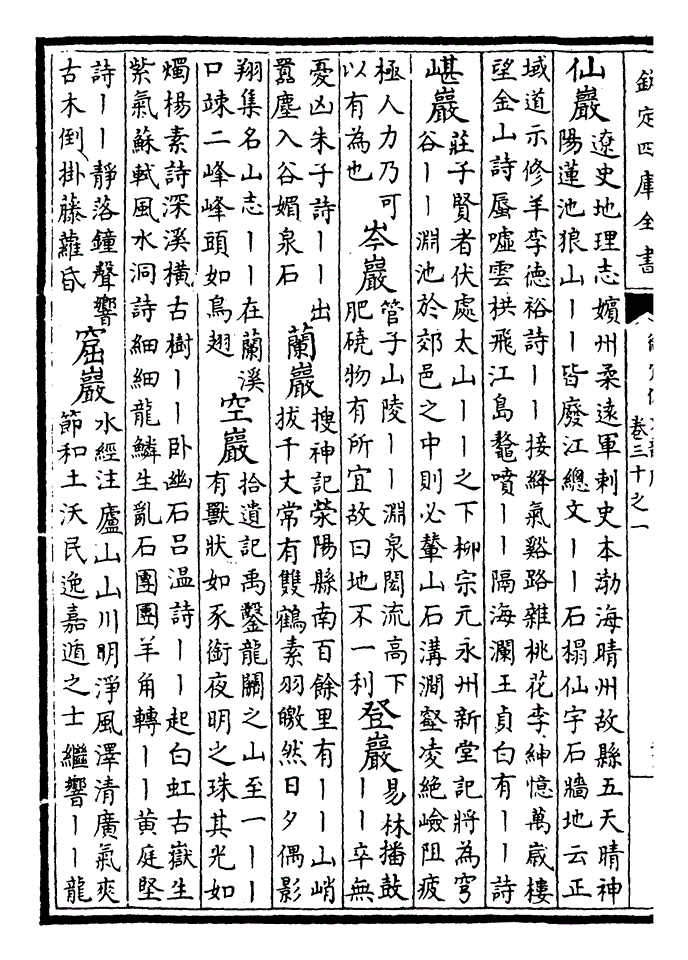 欽定四庫全書
卷三十之一
仙巖
遼史地理志嬪州柔遠軍刺史本渤海晴州故縣五天晴神
陽蓮池狼山丨丨皆廢江總文丨丨石榻仙宇石牆地云正
域道示修羊李徳裕詩丨丨接絳氣谿路雜桃花李紳憶萬歲樓
望金山詩蜃噓雲栱飛江島鼇噴丨丨隔海瀾王貞白有丨丨詩
嵁巖
莊子賢者伏處太山丨丨之下柳宗元永州新堂記將為穹
谷丨丨淵池於郊邑之中則必輦山石溝澗壑凌絕嶮阻疲
極人力乃可
以有為也
岑巖
管子山陵丨丨淵泉閎流高下
肥磽物有所宜故曰地不一利
登巖
易林播鼓
丨丨卒無
憂凶朱子詩丨丨出
囂塵入谷媚泉石
蘭巖
搜神記滎陽縣南百餘里有丨丨山峭
拔千丈常有雙鶴素羽皦然日夕偶影
翔集名山志丨丨在蘭溪
口竦二峰峰頭如鳥翅
空巖
拾遺記禹鑿龍關之山至一丨丨
有獸狀如豕銜夜明之珠其光如
燭楊素詩深溪横古樹丨丨卧幽石吕温詩丨丨起白虹古嶽生
紫氣蘇軾風水洞詩細細龍鱗生亂石團團羊角轉丨丨黄庭堅
詩丨丨靜落鐘聲響
古木倒掛藤蘿昏
窟巖
水經注廬山山川明淨風澤清廣氣爽
節和土沃民逸嘉遁之士繼響丨丨龍